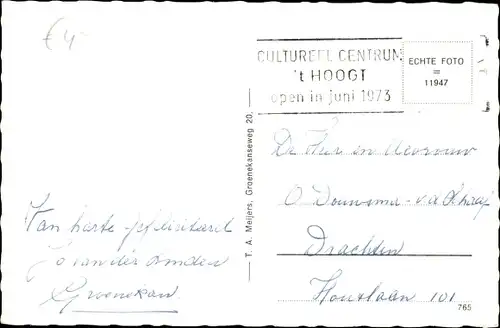 €4
CULTUREEL CENTRUM
't HOOGT
open in juni 1973
ECHTE FOTO
=
11947
T. A. Meijers, Groenekanseweg 20.
De Heer en Mevrouw
O Douwsma - v.d.
Drachten
Houtlaan 101
765
Van harte gefeliciteerd
Jo van der Linden
Groenekan